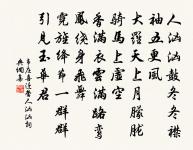 人洶洶鼓冬冬襟
袖五更風
大羅天上月朦朧
騎馬上虛空
香滿衣雲滿路鸞
鳳繞身飛舞
霓旌絳節一群群
引見玉華君
韋莊喜遷鶯人洶洶詞